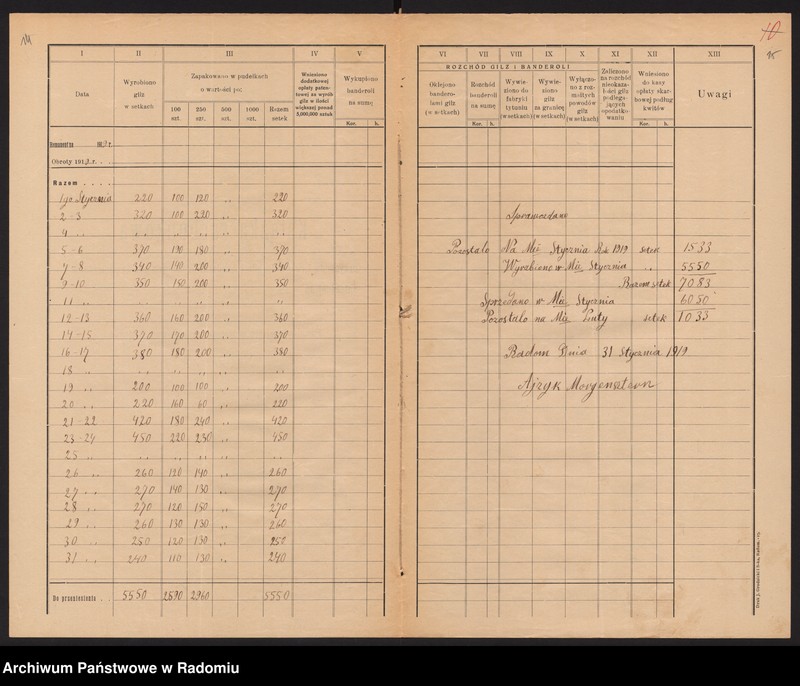 14
10
15
I II III IV V
Data
Wyrobiono gilz w setkach
Zapakowano w pudełkach o wart-ści po:
100 szt. 250 szt. 500 szt. 1000 szt. Razem setek
Wniesiono dodatkowej opłaty patentowej za wyrób gilz w ilości większej ponad 5,000,000 sztuk
Wykupiono banderoli na sumę
Kor. h.
Remanent na 191 r.
Obroty 191 r.
Razem
1go Stycznia 220 100 120 „ 220
2-3 320 100 220 „ 320
4 „ „ „ „ „ „
5-6 370 190 180 „ 370
7-8 340 140 200 „ 340
9-10 350 150 200 „ 350
11 „ „ „ „ „
12-13 360 160 200 „ 360
14-15 370 170 200 „ 370
16-17 380 180 200 „ 380
18 „ „ „ „ „ „
19 „ 200 100 100 „ 200
20 „ 220 160 60 „ 220
21-22 420 180 240 „ 420
23-24 450 220 230 „ 450
25 „ „ „ „ „ „
26 „ 260 120 140 „ 260
27 „ 270 140 130 „ 270
28 „ 270 120 150 „ 270
29 „ 260 130 130 „ 260
30 „ 250 120 130 „ 250
31 „ 240 110 130 „ 240
Do przeniesienia 5550 2590 2960 5550
VI VII VIII IX X XI XII XIII
ROZCHÓD GILZ I BANDEROLI
Oklejono banderolami gilz (w setkach)
Rozchód banderoli na sumę
Kor. h.
Wywieziono do fabryki tytoniu (w setkach)
Wywieziono gilz za granicę (w setkach)
Wyłączono z rozmaitych powodów gilz (w setkach)
Zaliczono na rozchód nieokazałości gilz podlegających opodatkowaniu
Wniesiono do kasy opłaty skarbowej podług kwitów
Kor. h.
Uwagi
Sprawozdano
Pozostało Na Mie Stycznia Rok 1919 setek 1533
Wyrobiono w Mie Stycznia „ 5550
Razem setek 7083
Sprzedano w Mie Stycznia 6050
Pozostało na Mie Luty setek 1033
Radom Dnia 31 Stycznia 1919
Ajzyk Morgensztern
Archiwum Państwowe w Radomiu